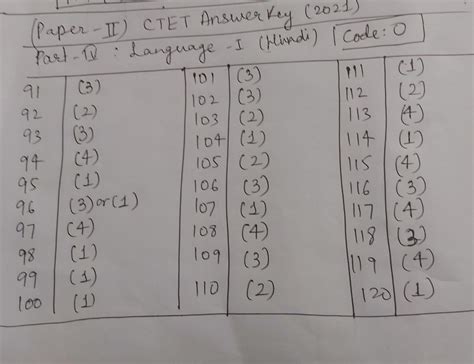 (Paper-II) CTET Answer Key (2021)
Part-IV : Language-I (Hindi) | Code: O
91 (3) 101 (3) 111 (1)
92 (2) 102 (3) 112 (2)
93 (3) 103 (2) 113 (4)
94 (4) 104 (1) 114 (1)
95 (1) 105 (2) 115 (4)
96 (3) or (1) 106 (3) 116 (3)
97 (4) 107 (1) 117 (4)
98 (1) 108 (4) 118 (3)
99 (1) 109 (3) 119 (4)
100 (1) 110 (2) 120 (1)